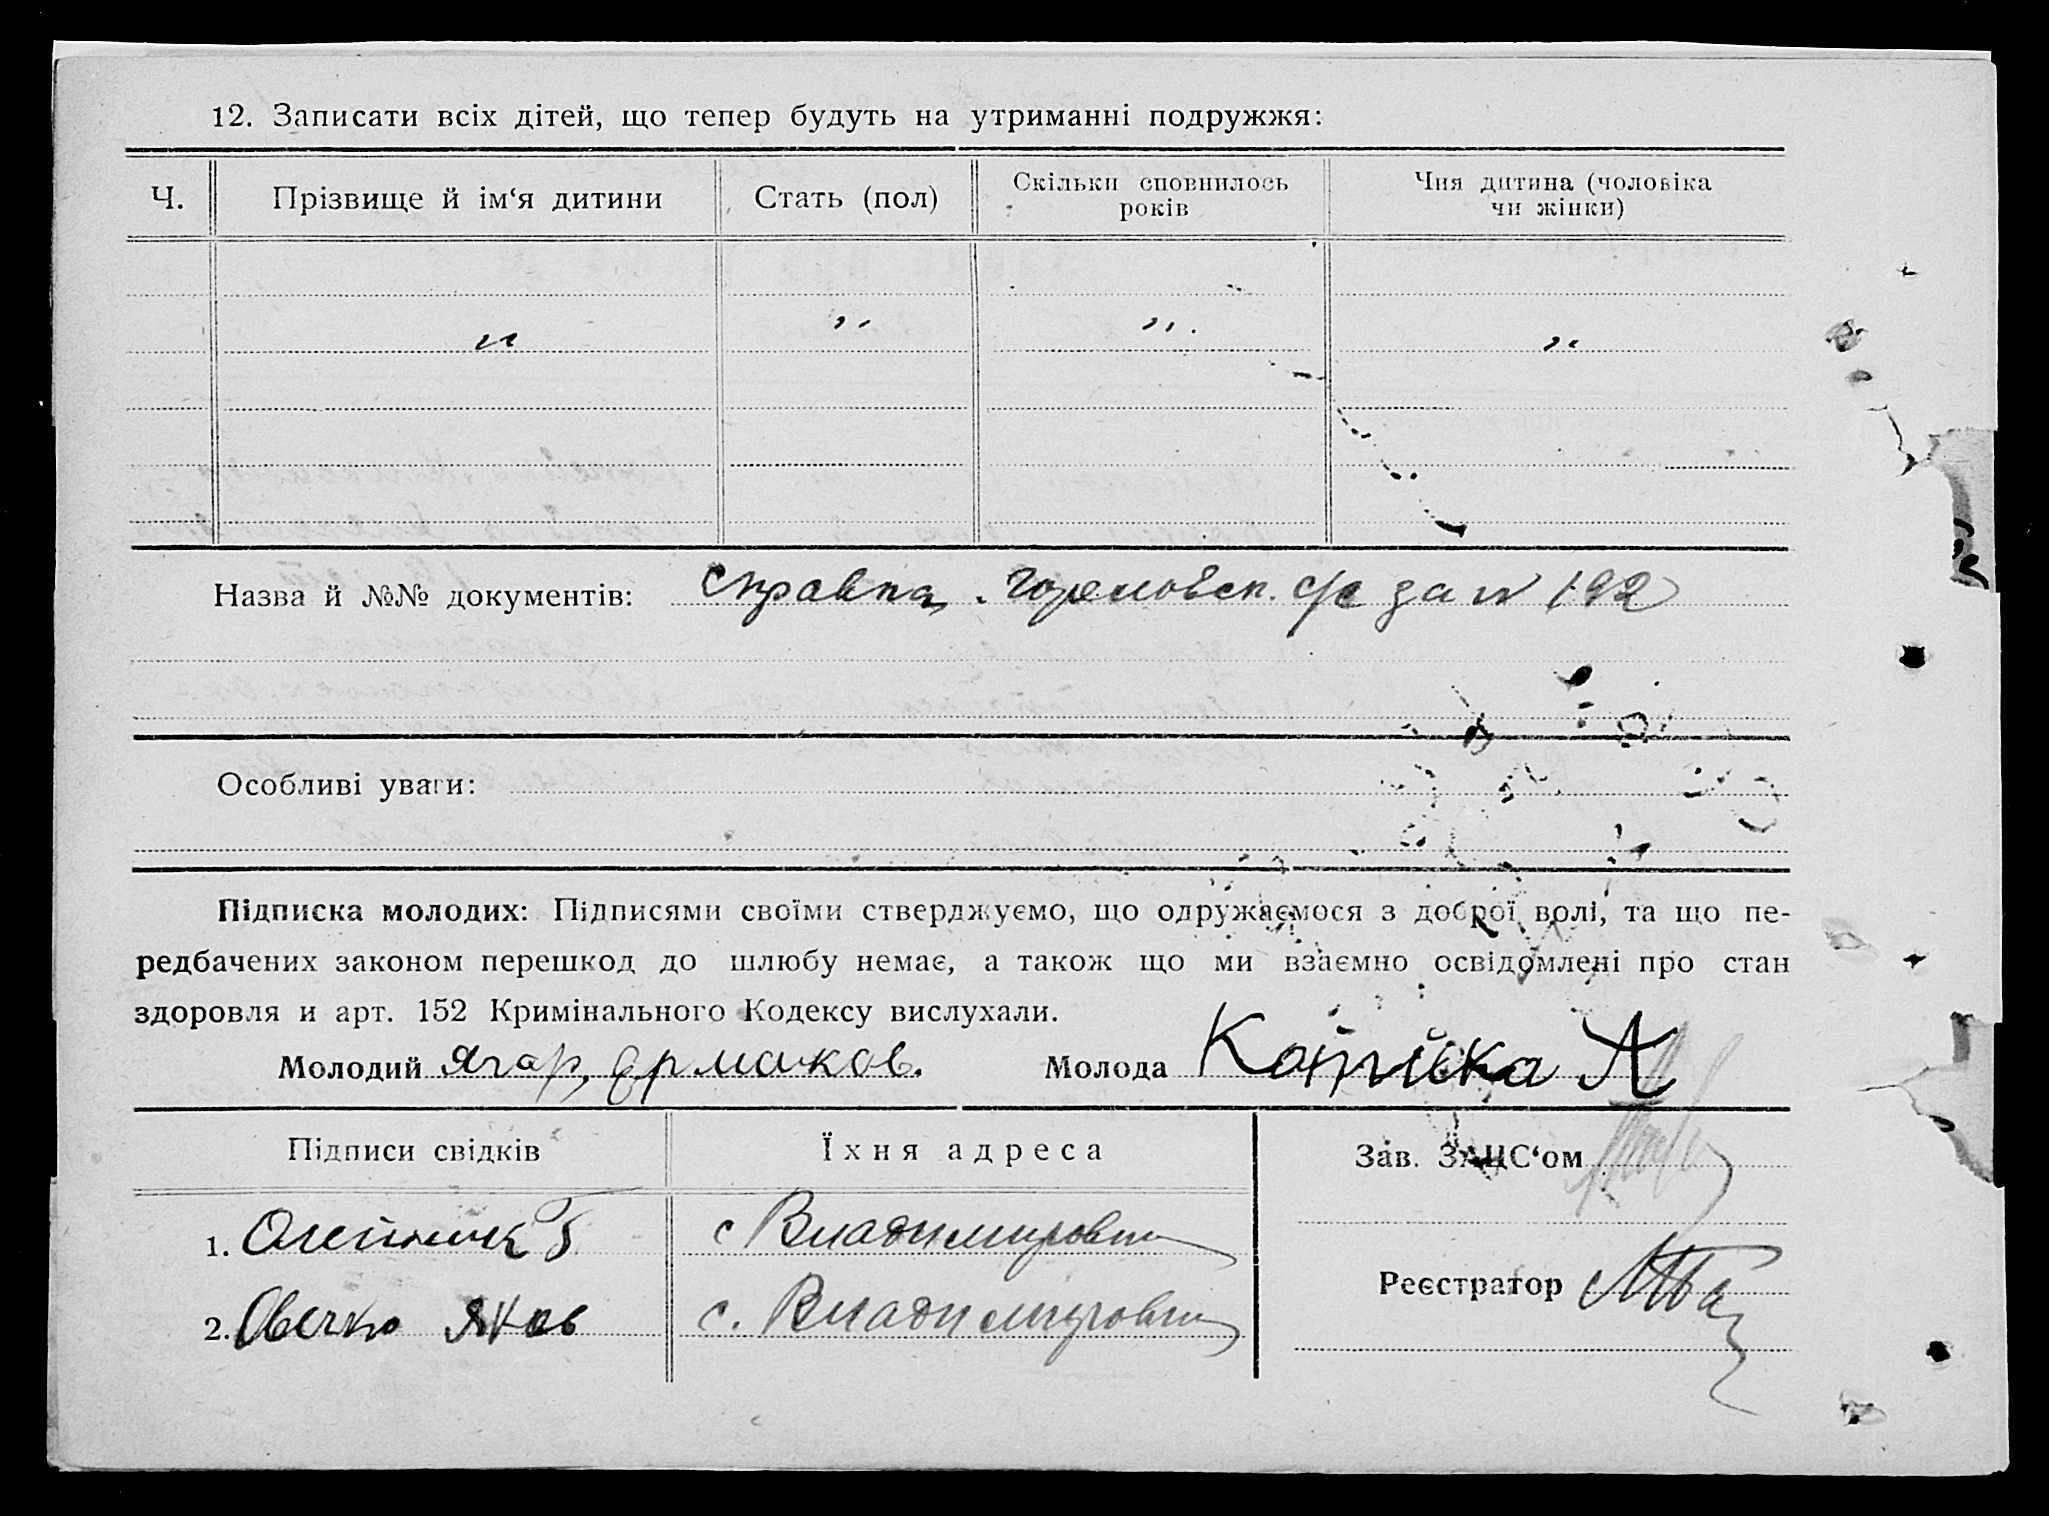 12. Записати всіх дітей, що тепер будуть на утриманні подружжя:
Ч. Прізвище й ім‘я дитини Стать (пол) Скільки сповнилось років Чия дитина (чоловіка чи жінки)
„ „ „ „
Назва й №№ документів: справка с/с за № 192
Особливі уваги:
Підписка молодих: Підписями своїми стверджуємо, що одружаємося з доброї волі, та що пе-
редбачених законом перешкод до шлюбу немає, а також що ми взаємно освідомлені про стан
здоровля и арт. 152 Кримінального Кодексу вислухали.
Молодий Ягар, ермаков. Молода А
Підписи свідків Їхня адреса Зав. ЗАЦС‘ом
1. Олейник Г с Владимировки
Реєстратор
2. Овечко Яков с. Владимировки